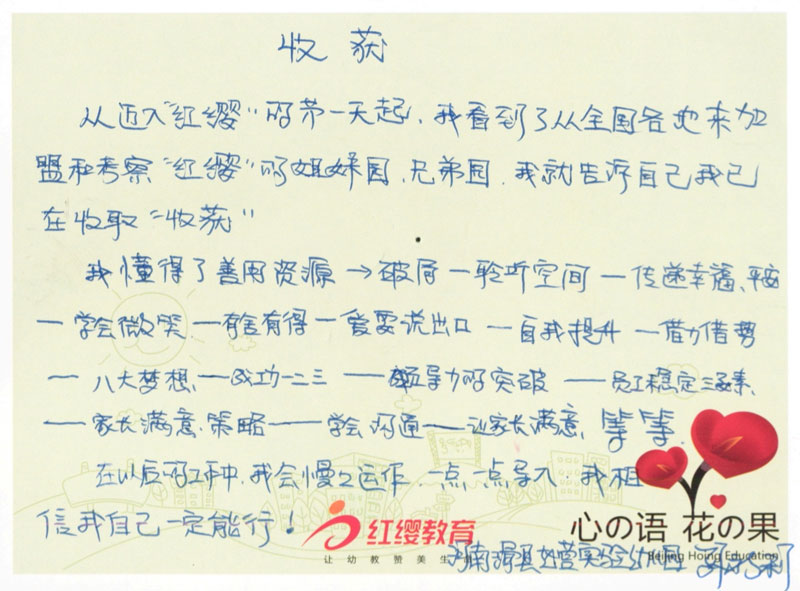 收获
从迈入“红缨”的第一天起，我看到了从全国各地来加
盟和考察“红缨”的姐妹园、兄弟园，我就告诉自己我已
在收取“收获”
我懂得了善用资源→破局—聆听空间—传递幸福、平安
—学会微笑—有舍有得—爱要说出口—自我提升—借力借势
—八大梦想—成功一二三—领导力的突破—员工稳定三要素
—家长满意策略—学会沟通—让家长满意，等等.
在以后的工作中，我会慢之运作，一点一点导入，我相
信我自己一定能行！
红缨教育
让幼教赞美生
心の语 花の果
Beijing Hoing Education
河南滑县